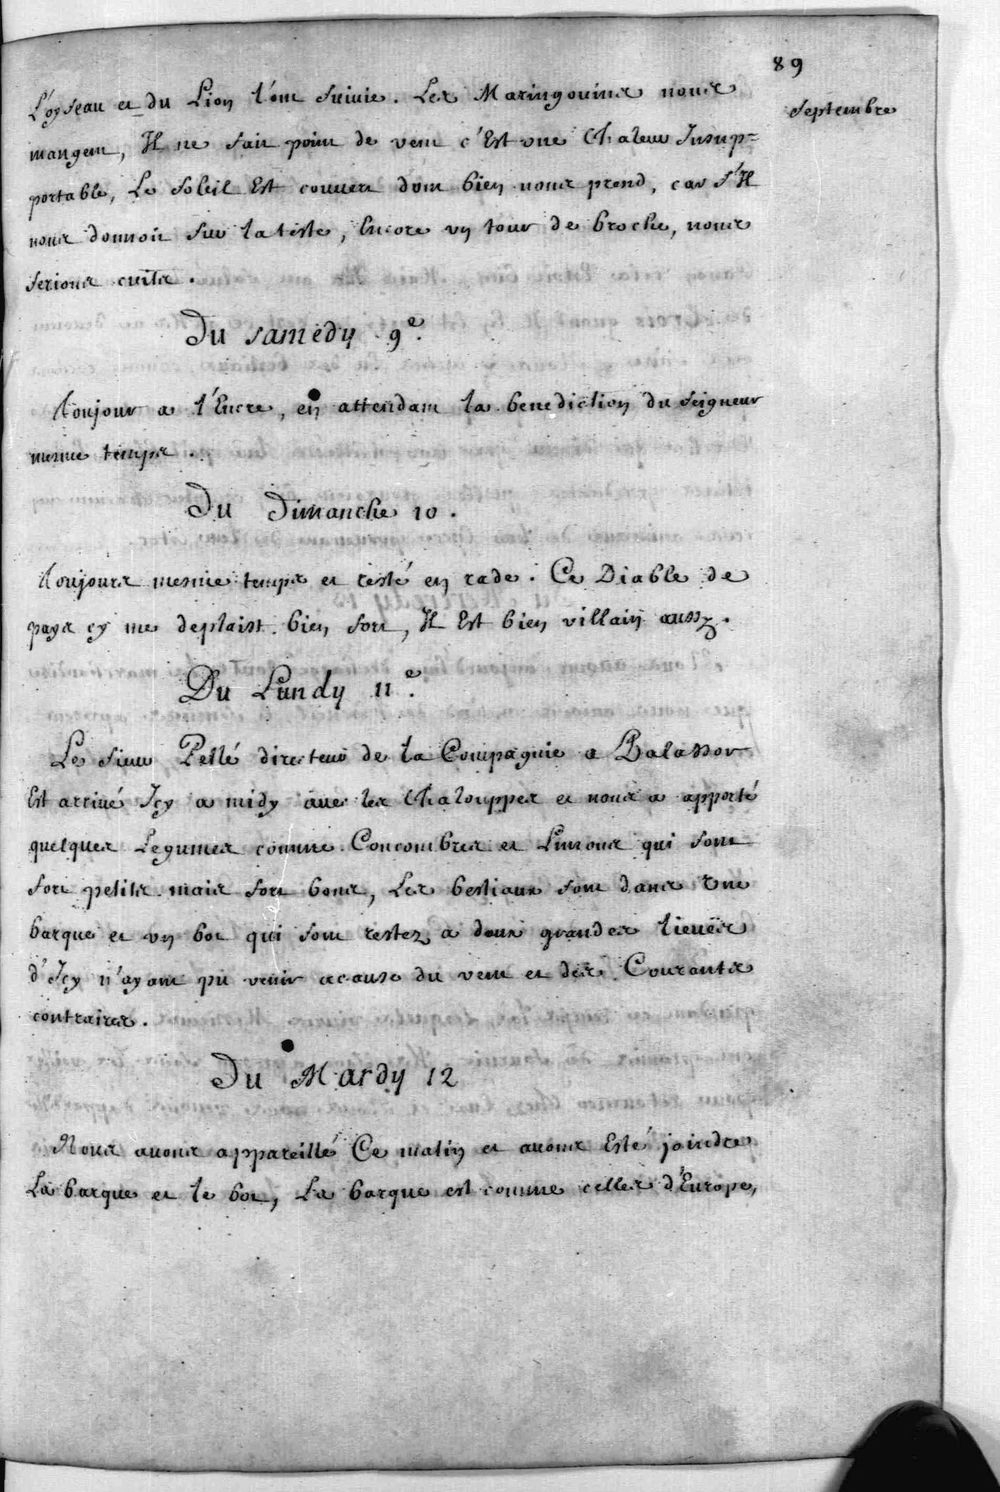 89
Septembre
L'oyseau et du Lion l'ont suivie. Les Maringouins nous
mangent, Il ne fait point de vent c'Est une Chaleur Insup=
portable, Le Soleil Est couvert dont bien nous prend, car s'Il
nous donnoit sur la teste, Encore un tour de broche, nous
serions cuits.
Du samedy 9e.
Toujour a l'Encre, en attendant la benediction du seigneur
mesme temps.
Du Dimanche 10.
Toujours mesme temps et resté en rade. Ce Diable de
pays cy me deplaist bien fort, Il Est bien villain aussy.
Du Lundy 11e.
Le sieur Pellé directeur de la Compagnie a Balassor
Est arrivé Icy a midy avec les Chalouppes et nous a apporté
quelques Legumes comme Concombres et Limons qui sont
fort petits mais fort bons, Les bestiaux sont dans une
barque et un bot qui sont restez a deux grandes lieuës
d'Icy n'ayant pu venir acause du vent et des Courants
contraires.
Du Mardy 12
Nous avons appareillé Ce matin et avons Esté joindre
La barque et le bot, La barque est comme celles d'Europe,